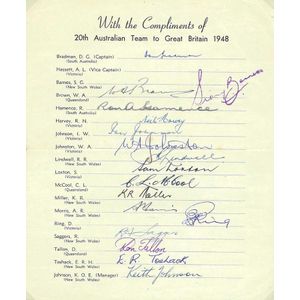 With the Compliments of
20th Australian Team to Great Britain 1948
Bradman, D. G. (Captain)
(South Australia)
Hassett, A. L. (Vice Captain)
(Victoria)
Barnes, S. G.
(New South Wales)
Brown, W. A.
(Queensland)
Hamence, R.
(South Australia)
Harvey, R. N.
(Victoria)
Johnson, I. W.
(Victoria)
Johnston, W. A.
(Victoria)
Lindwall, R. R.
(New South Wales)
Loxton, S.
(Victoria)
Sam Loxton
McCool, C. L.
(Queensland)
C. L. McCool
Miller, K. R.
(New South Wales)
KR Miller
Morris, A. R.
(New South Wales)
Ring, D.
(Victoria)
D Ring
Saggers, R.
(New South Wales)
Tallon, D.
(Queensland)
Don Tallon
Toshack, E. R. H.
(New South Wales)
E. R. Toshack
Johnson, K. O. E. (Manager)
(New South Wales)
Keith Johnson